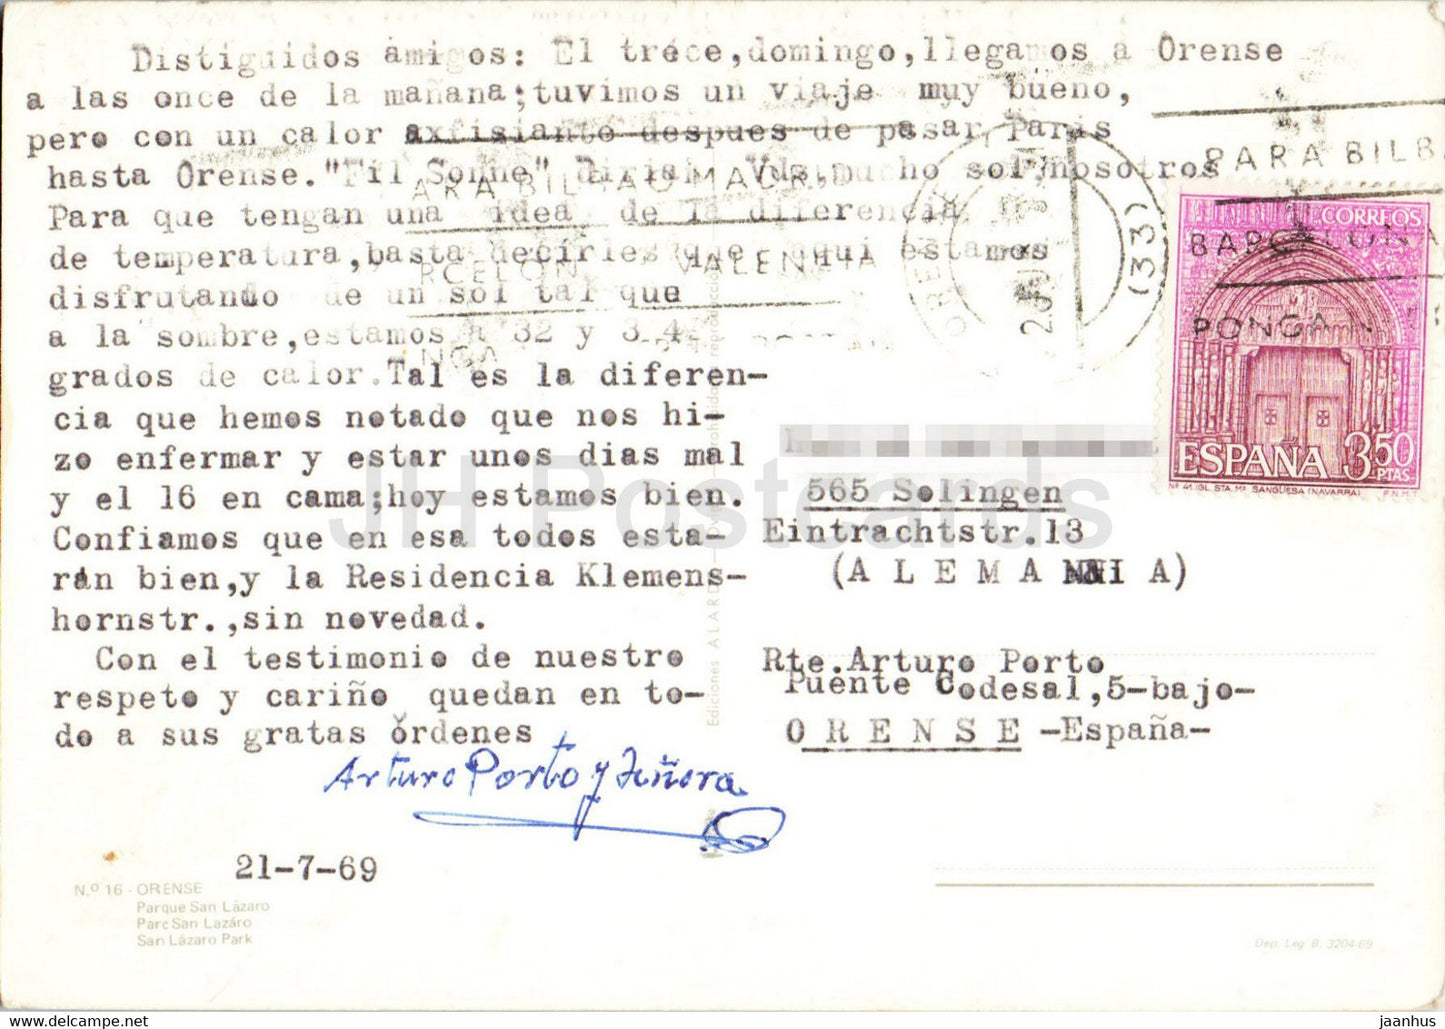 Distiguidos amigos: El trece,domingo,llegamos a Orense
a las once de la mañana;tuvimos un viaje muy bueno,
pero con un calor axfisiante despues de pasar Paris
hasta Orense."Fil Sonne" Vds, mucho sol, nosotros
Para que tengan una idea de la diferencia
de temperatura,basta decirles que aqui estamos
disfrutando de un sol tal que
a la sombre,estamos a 32 y 34
grados de calor.Tal es la diferen-
cia que hemos notado que nos hi-
zo enfermar y estar unos dias mal
y el 16 en cama;hoy estamos bien.
Confiamos que en esa todos esta-
rán bien,y la Residencia Klemens-
hornstr.,sin novedad.
Con el testimonio de nuestro
respeto y cariño quedan en to-
do a sus gratas órdenes
Arturo Porto y Señora
21-7-69
N.º 16 - ORENSE
Parque San Lázaro
Parc San Lazáro
San Lázaro Park
Ediciones ALARD
PARA BILB
BARCELONA
PONGA
ARA BILBAO MADRID
RCELON VALENCIA
NGA
ORENSE
(33)
CORREOS
ESPAÑA 3'50 PTAS.
Nº 41. IGL. STA. Mª SANGÜESA (NAVARRA) F.N.M.T.
565 Solingen
Eintrachtstr.13
(A L E M A N I A)
Rte.Arturo Porto
Puente Codesal,5-bajo-
O R E N S E -España-
Dep. Leg. B. 3204-69
JH Postcards
www.delcampe.net
jaanhus